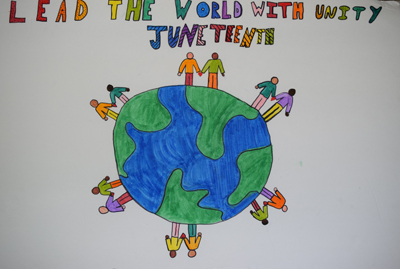 LEAD THE WORLD WITH UNITY
JUNETEENTH